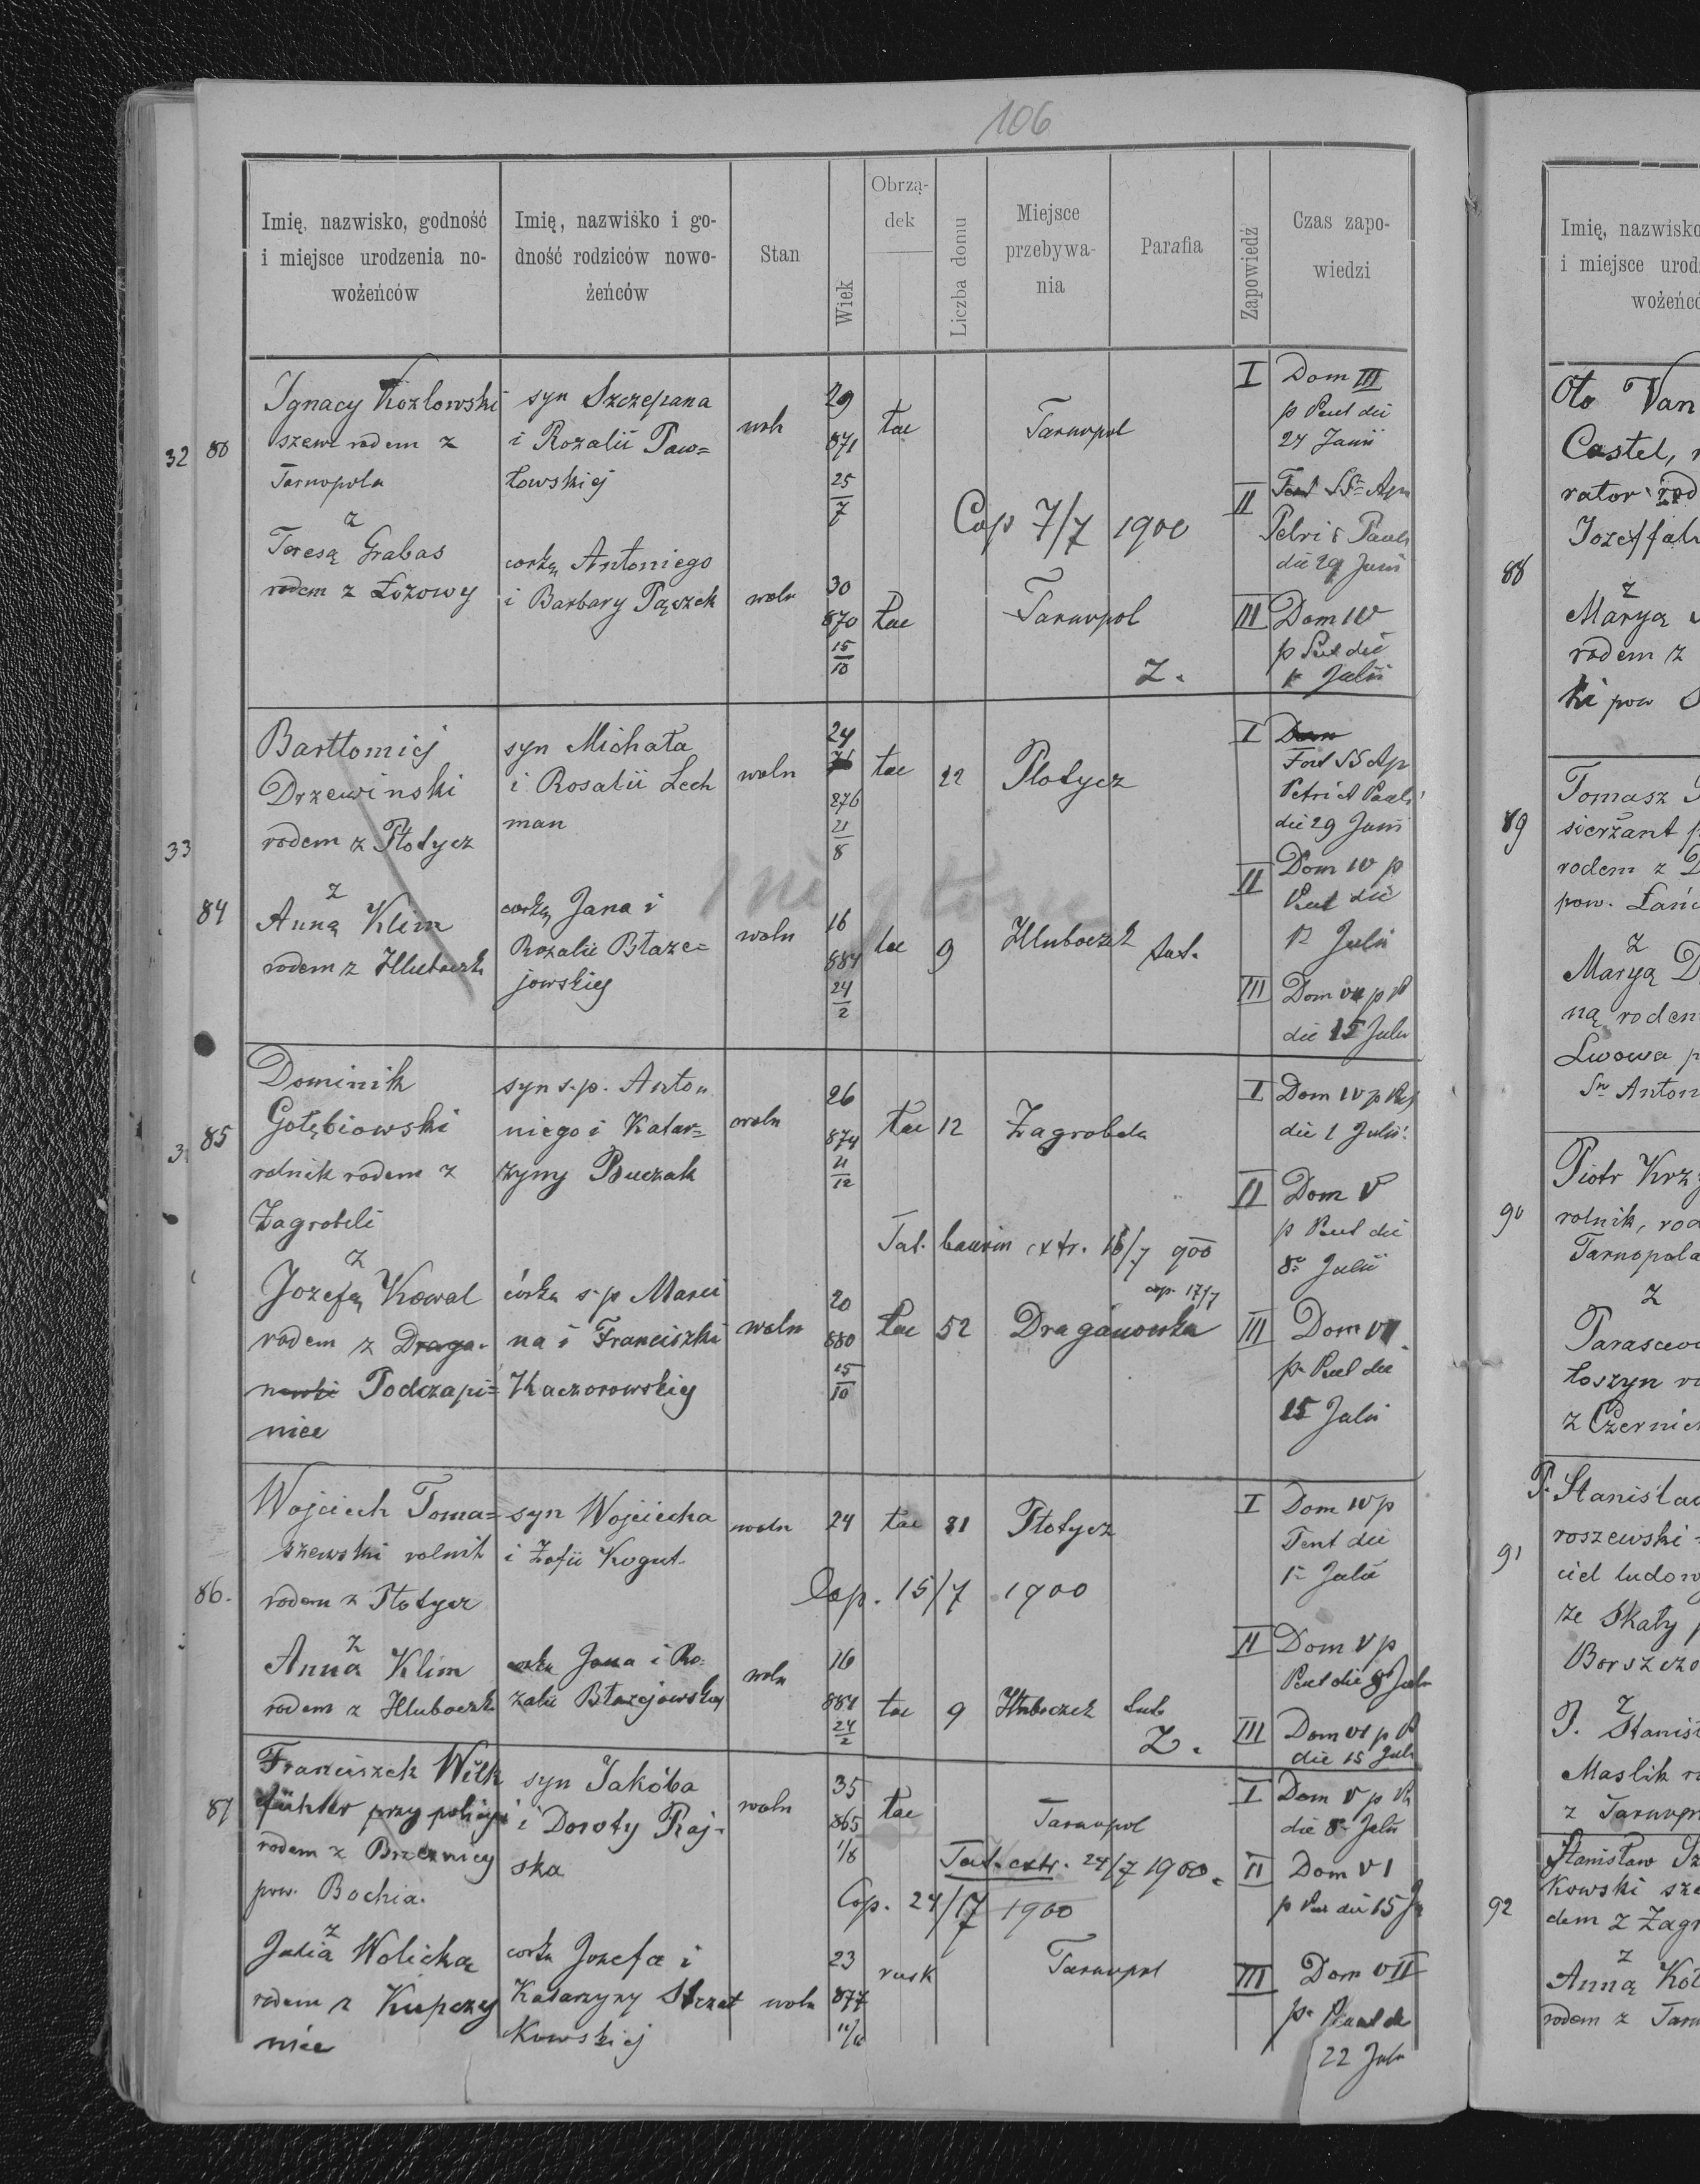 106
Imię, nazwisko, godność
i miejsce urodzenia no-
wożeńców
Imię, nazwisko i go-
dność rodziców nowo-
żeńców
Stan
Wiek
Obrzą-
dek
Liczba domu
Miejsce
przebywa-
nia
Parafia
Zapowiedź
Czas zapo-
wiedzi
32 80
Ignacy Kozlowski
szewc rodem z
Tarnopola
z
Teresą Grabas
rodem z Łozowy
syn Szczepana
i Rozalii Paw=
łowskiej
corką Antoniego
i Barbary Pąszek
woln
29
871
25
7
lac
Tarnopol
Cop 7/7 1900
woln
30
870
15
10
lac
Tarnopol
Z.
I Dom III
p Pent die
24 Junii
II Fest SS Apu
Petri & Pauli
die 29 Junii
III Dom IV
p Pent die
1 Julii
33
84
Bartłomiej
Drzewinski
rodem z Płotycz
z
Anną Klim
rodem z Hluboczk
syn Michała
i Rosalii Lech
man
corką Jana i
Rozalii Błaze=
jowskiej
woln
24
876
21
8
lac 22 Płotycz
woln
16
884
24
2
lac 9 Hluboczek
I Dom
Fest SS Ap
Petri et Pauli
die 29 Junii
II Dom IV p
Pent die
1a Julii
III Dom VI p P
die 15 Julii
85
Dominik
Gołębiowski
rolnik rodem z
Zagrobeli
z
Jozefą Kowal
rodem z Draga-
nowki Podczapi=
niec
syn s.p. Anto
niego i Katar=
zyny Buczak
córka s.p Marci
na i Franciszki
Kaczorowskiej
woln
26
874
21
12
lac 12 Zagrobela
extr. 16/7 900
cop. 17/7
woln
20
880
15
10
lac 52 Draganowka
I Dom IV p Pent
die 1 Julii
II Dom V
p Pent die
8a Julii
III Dom VI
p Pent die
15 Julii
86.
Wojciech Toma=
szewski rolnik
rodem z Płotycz
z
Anna Klim
rodem z Hluboczk
syn Wojciecha
i Zofii Kogut
corka Jana i Ro-
zalii Błazejowskiej
woln 24 lac 31 Płotycz
Cop. 15/7 1900
woln
16
884
24
2
lac 9 Hluboczek
Z.
I Dom IV p
Pent die
1a Julii
II Dom V p
Pent die 8 Julii
III Dom VI p P
die 15 Julii
87
Franciszek Wilk
führer przy policyi
rodem z Brzeznicy
pow. Bochia.
z
Julia Wolicka
rodem z Kupczy
niec
syn Jakóba
i Doroty Raj-
ska
corka Jozefa i
Katarzyny Strzat
kowskiej
woln
35
865
1/8
lac
Tarnopol
extr. 24/7 1900.
Cop. 24/7 1900
woln
23
877
rusk
Tarnopol
I Dom V p P
die 8a Julii
II Dom VI
p Pen die 15 Ju
III Dom VII
p. Pent de
22 Julii
Imię, nazwisko
i miejsce urod
wożeńcó
88
Oto Van
Castel,
rator rod
Jozeffah
z
Maryą
rodem z
ki pow
89
Tomasz
sierżant p
rodem z D
pow. Łańc
z
Maryą D
ną rodem
Lwowa p
Sn Anton
90
Piotr Krzy
rolnik, rod
Tarnopola
z
Parascev
łoszyn ro
z Czernie
91
P. Stanisław
roszewski
ciel ludow
ze Skały p
Borszczo
z
P. Stanis
Maslik ro
z Tarnop
92
Stanisław Sz
kowski sze
dem z Zagr
z
Anną Kot
rodem z Tarn